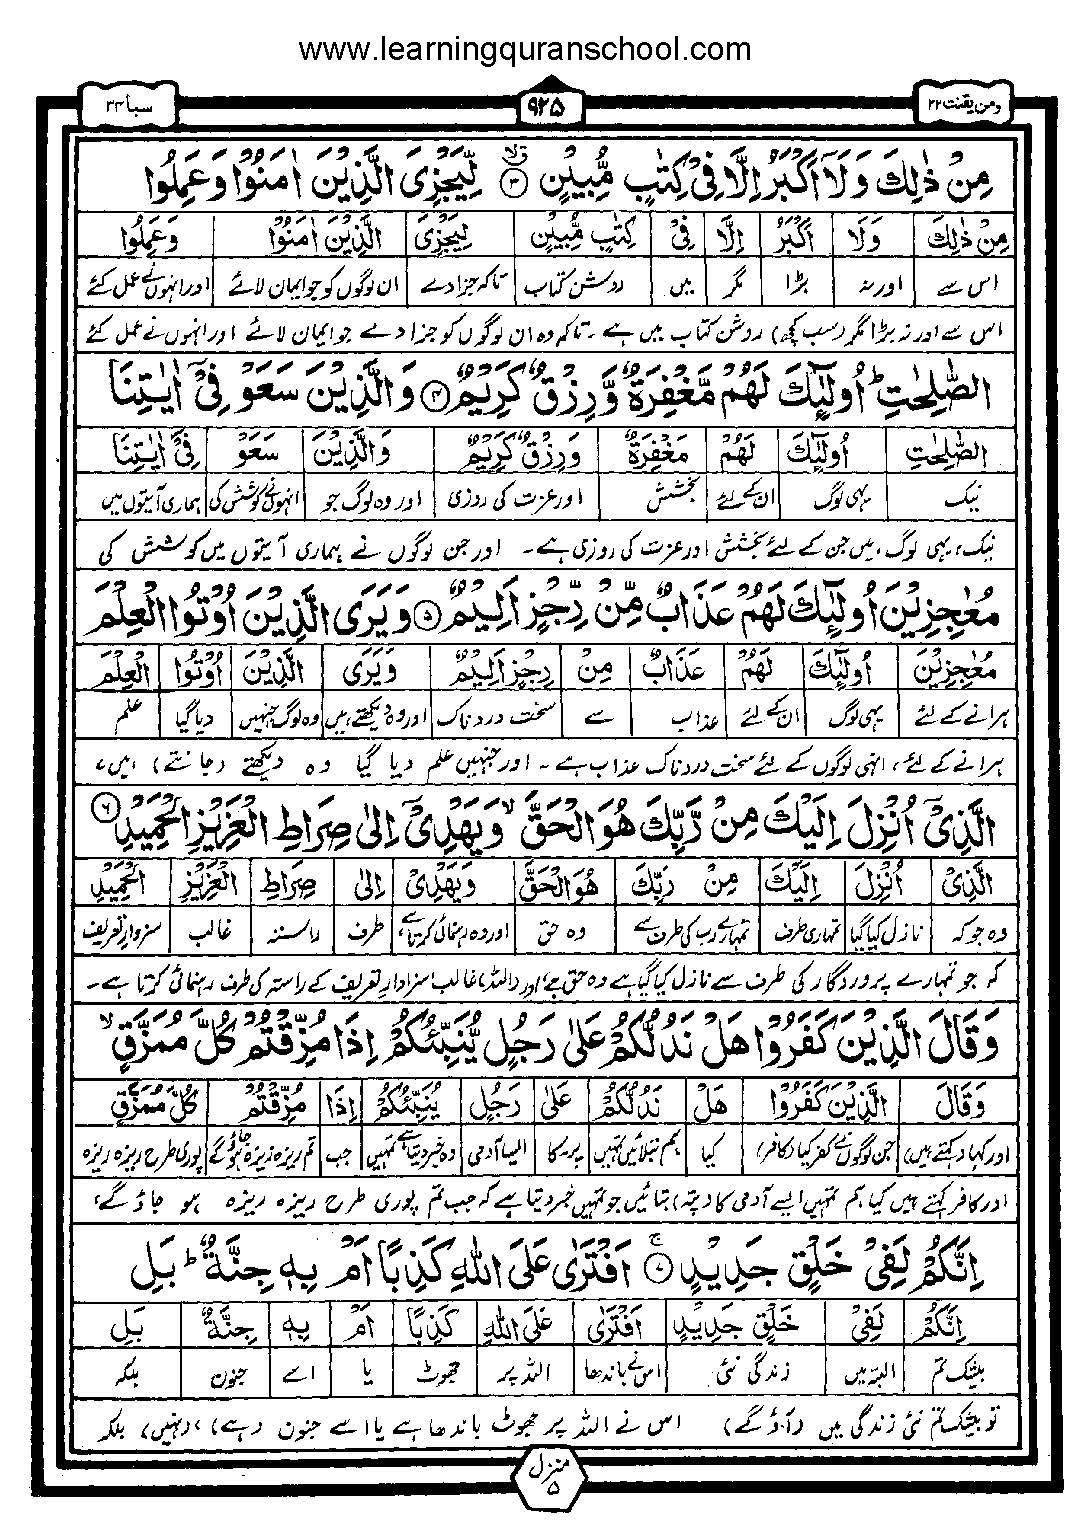 www.learningquranschool.com
ومن یقنت ۲۲
۹۲۵
سبا ۳۴
مِنْ ذٰلِكَ وَلَاۤ اَكْبَرُ اِلَّا فِیْ كِتٰبٍ مُّبِیْنٍ ۳ لِّیَجْزِیَ الَّذِیْنَ اٰمَنُوْا وَعَمِلُوا
مِنْ ذٰلِكَ وَلَا اَكْبَرُ اِلَّا فِیْ كِتٰبٍ مُّبِیْنٍ لِیَجْزِیَ الَّذِیْنَ اٰمَنُوْا وَعَمِلُوا
اس سے اور نہ بڑا مگر میں روشن کتاب تاکہ جزا دے ان لوگوں کو جو ایمان لائے اور انہوں نے عمل کئے
اس سے اور نہ بڑا مگر (سب کچھ) روشن کتاب میں ہے ۔ تاکہ وہ ان لوگوں کو جزا دے جو ایمان لائے اور انہوں نے عمل کئے
الصّٰلِحٰتِ ؕ اُولٰٓئِكَ لَهُمْ مَّغْفِرَةٌ وَّرِزْقٌ كَرِیْمٌ ۴ وَالَّذِیْنَ سَعَوْ فِیْۤ اٰیٰتِنَا
الصّٰلِحٰتِ اُولٰٓئِكَ لَهُمْ مَغْفِرَةٌ وَرِزْقٌ كَرِیْمٌ وَالَّذِیْنَ سَعَوْ فِیْۤ اٰیٰتِنَا
نیک یہی لوگ ان کے لئے بخشش اور عزت کی روزی اور وہ لوگ جو انہوں نے کوشش کی ہماری آیتوں میں
نیک، یہی لوگ ہیں جن کے لئے بخشش اور عزت کی روزی ہے ۔ اور جن لوگوں نے ہماری آیتوں میں کوشش کی
مُعٰجِزِیْنَ اُولٰٓئِكَ لَهُمْ عَذَابٌ مِّنْ رِّجْزٍ اَلِیْمٌ ۵ وَیَرَی الَّذِیْنَ اُوْتُوا الْعِلْمَ
مُعٰجِزِیْنَ اُولٰٓئِكَ لَهُمْ عَذَابٌ مِنْ رِجْزٍ اَلِیْمٌ وَیَرَی الَّذِیْنَ اُوْتُوا الْعِلْمَ
ہرانے کے لئے یہی لوگ ان کے لئے عذاب سے سخت دردناک اور وہ دیکھتے ہیں وہ لوگ جنہیں دیا گیا علم
ہرانے کے لئے، انہی لوگوں کے لئے سخت دردناک عذاب ہے ۔ اور جنہیں علم دیا گیا وہ دیکھتے (جانتے) ہیں،
الَّذِیْۤ اُنْزِلَ اِلَیْكَ مِنْ رَّبِّكَ هُوَ الْحَقَّ ۙ وَیَهْدِیْۤ اِلٰی صِرَاطِ الْعَزِیْزِ الْحَمِیْدِ ۶
الَّذِیْ اُنْزِلَ اِلَیْكَ مِنْ رَبِّكَ هُوَ الْحَقَّ وَیَهْدِیْۤ اِلٰی صِرَاطِ الْعَزِیْزِ الْحَمِیْدِ
وہ جو کہ نازل کیا گیا تمہاری طرف تمہارے رب کی طرف سے وہ حق اور وہ رہنمائی کرتا ہے طرف راستہ غالب سزاوار تعریف
کہ جو تمہارے پروردگار کی طرف سے نازل کیا گیا ہے وہ حق ہے اور (اللہ) غالب سزاوار تعریف کے راستہ کی طرف رہنمائی کرتا ہے ۔
وَقَالَ الَّذِیْنَ كَفَرُوْا هَلْ نَدُلُّكُمْ عَلٰی رَجُلٍ یُّنَبِّئُكُمْ اِذَا مُزِّقْتُمْ كُلَّ مُمَزَّقٍ ۙ
وَقَالَ الَّذِیْنَ كَفَرُوْا هَلْ نَدُلُّكُمْ عَلٰی رَجُلٍ یُنَبِّئُكُمْ اِذَا مُزِّقْتُمْ كُلَّ مُمَزَّقٍ
اور کہا (کہتے ہیں) جن لوگوں نے کفر کیا (کافر) کیا ہم بتلائیں تمہیں پر۔کا ایسا آدمی وہ خبر دیتا ہے تمہیں جب تم ریزہ ریزہ ہو جاؤ گے پوری طرح ریزہ ریزہ
اور کافر کہتے ہیں کیا ہم تمہیں ایسے آدمی کا (پتہ) بتائیں جو تمہیں خبر دیتا ہے کہ جب تم پوری طرح ریزہ ریزہ ہو جاؤ گے،
اِنَّكُمْ لَفِیْ خَلْقٍ جَدِیْدٍ ۷ اَفْتَرٰی عَلَی اللّٰهِ كَذِبًا اَمْ بِهٖ جِنَّةٌ ؕ بَلِ
اِنَّكُمْ لَفِیْ خَلْقٍ جَدِیْدٍ اَفْتَرٰی عَلَی اللّٰهِ كَذِبًا اَمْ بِهٖ جِنَّةٌ بَلِ
بیشک تم البتہ میں زندگی نئی اس نے باندھا اللہ پر جھوٹ یا اسے جنون بلکہ
تو بیشک تم نئی زندگی میں (آؤ گے) اس نے اللہ پر جھوٹ باندھا ہے یا اسے جنون (ہے)، (نہیں) بلکہ
منزل ۵